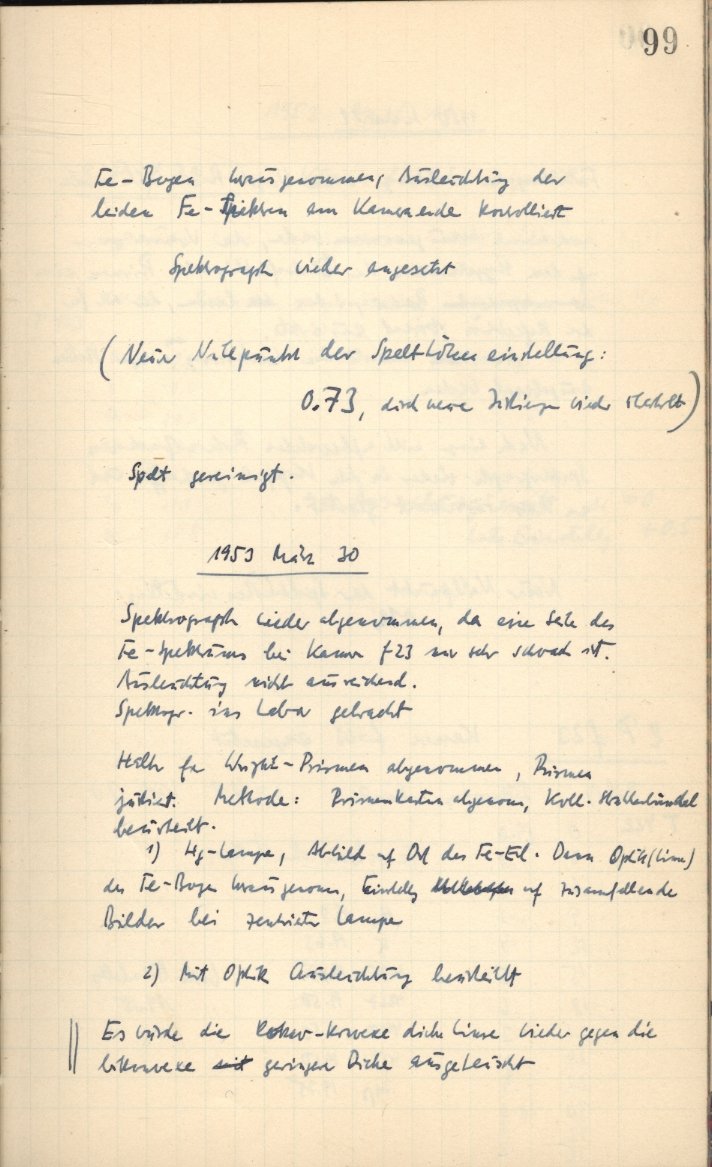 99
Fe-Bogen herausgenommen, Ausleuchtung der
beiden Fe-Spektren am Kameraende kontrolliert
Spektrograph wieder angesetzt
(Neuer Nullpunkt der Spalthöheneinstellung:
0.73, durch neue wieder überholt)
Spalt gereinigt.
1953 März 30
Spektrograph wieder abgenommen, da eine Seite des
Fe-Spektrums bei Kamera f23 nur sehr schwach ist.
Ausleuchtung nicht ausreichend.
Spektrogr. ins Labor gebracht
für Wright-Prismen abgenommen, Prismen
justiert. Methode: Prismenkasten abgenom, Koll.
beurteilt.
1) Hg-Lampe, Abbild auf Ort des Fe- Dann Optik (Linse)
des Fe-Bogen herausgenom, auf zusammenfallende
Bilder bei zentrierter Lampe
2) Mit Optik Ausleuchtung beurteilt
Es wurde die konvexe dicke Linse wieder gegen die
bikonvexe geringere Dicke ausgetauscht